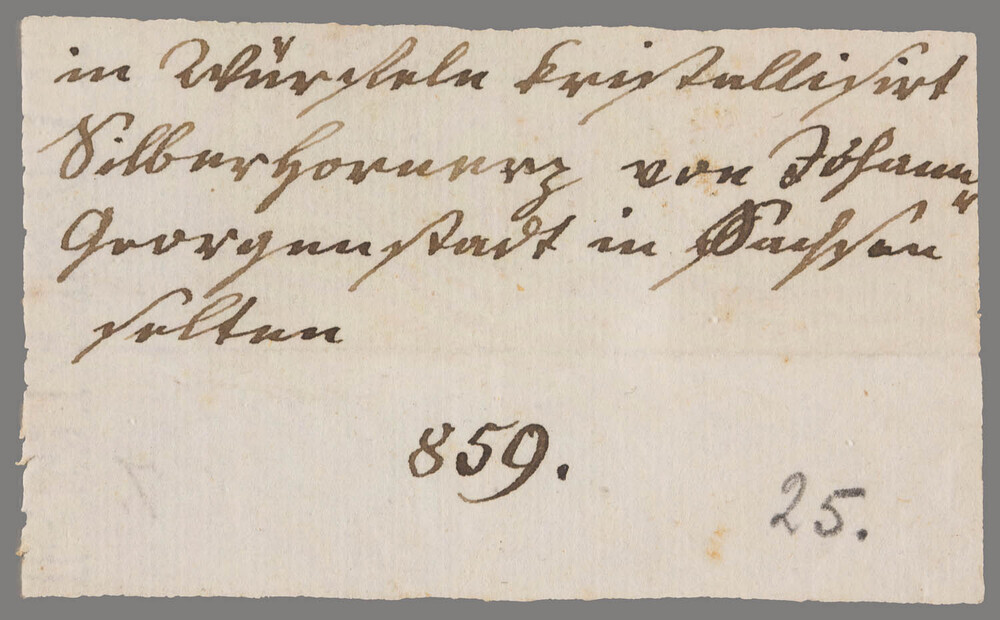 in Würfeln kristallisirt
Silberhornerz von Johann
Georgenstadt in Sachsen
selten
859.
25.